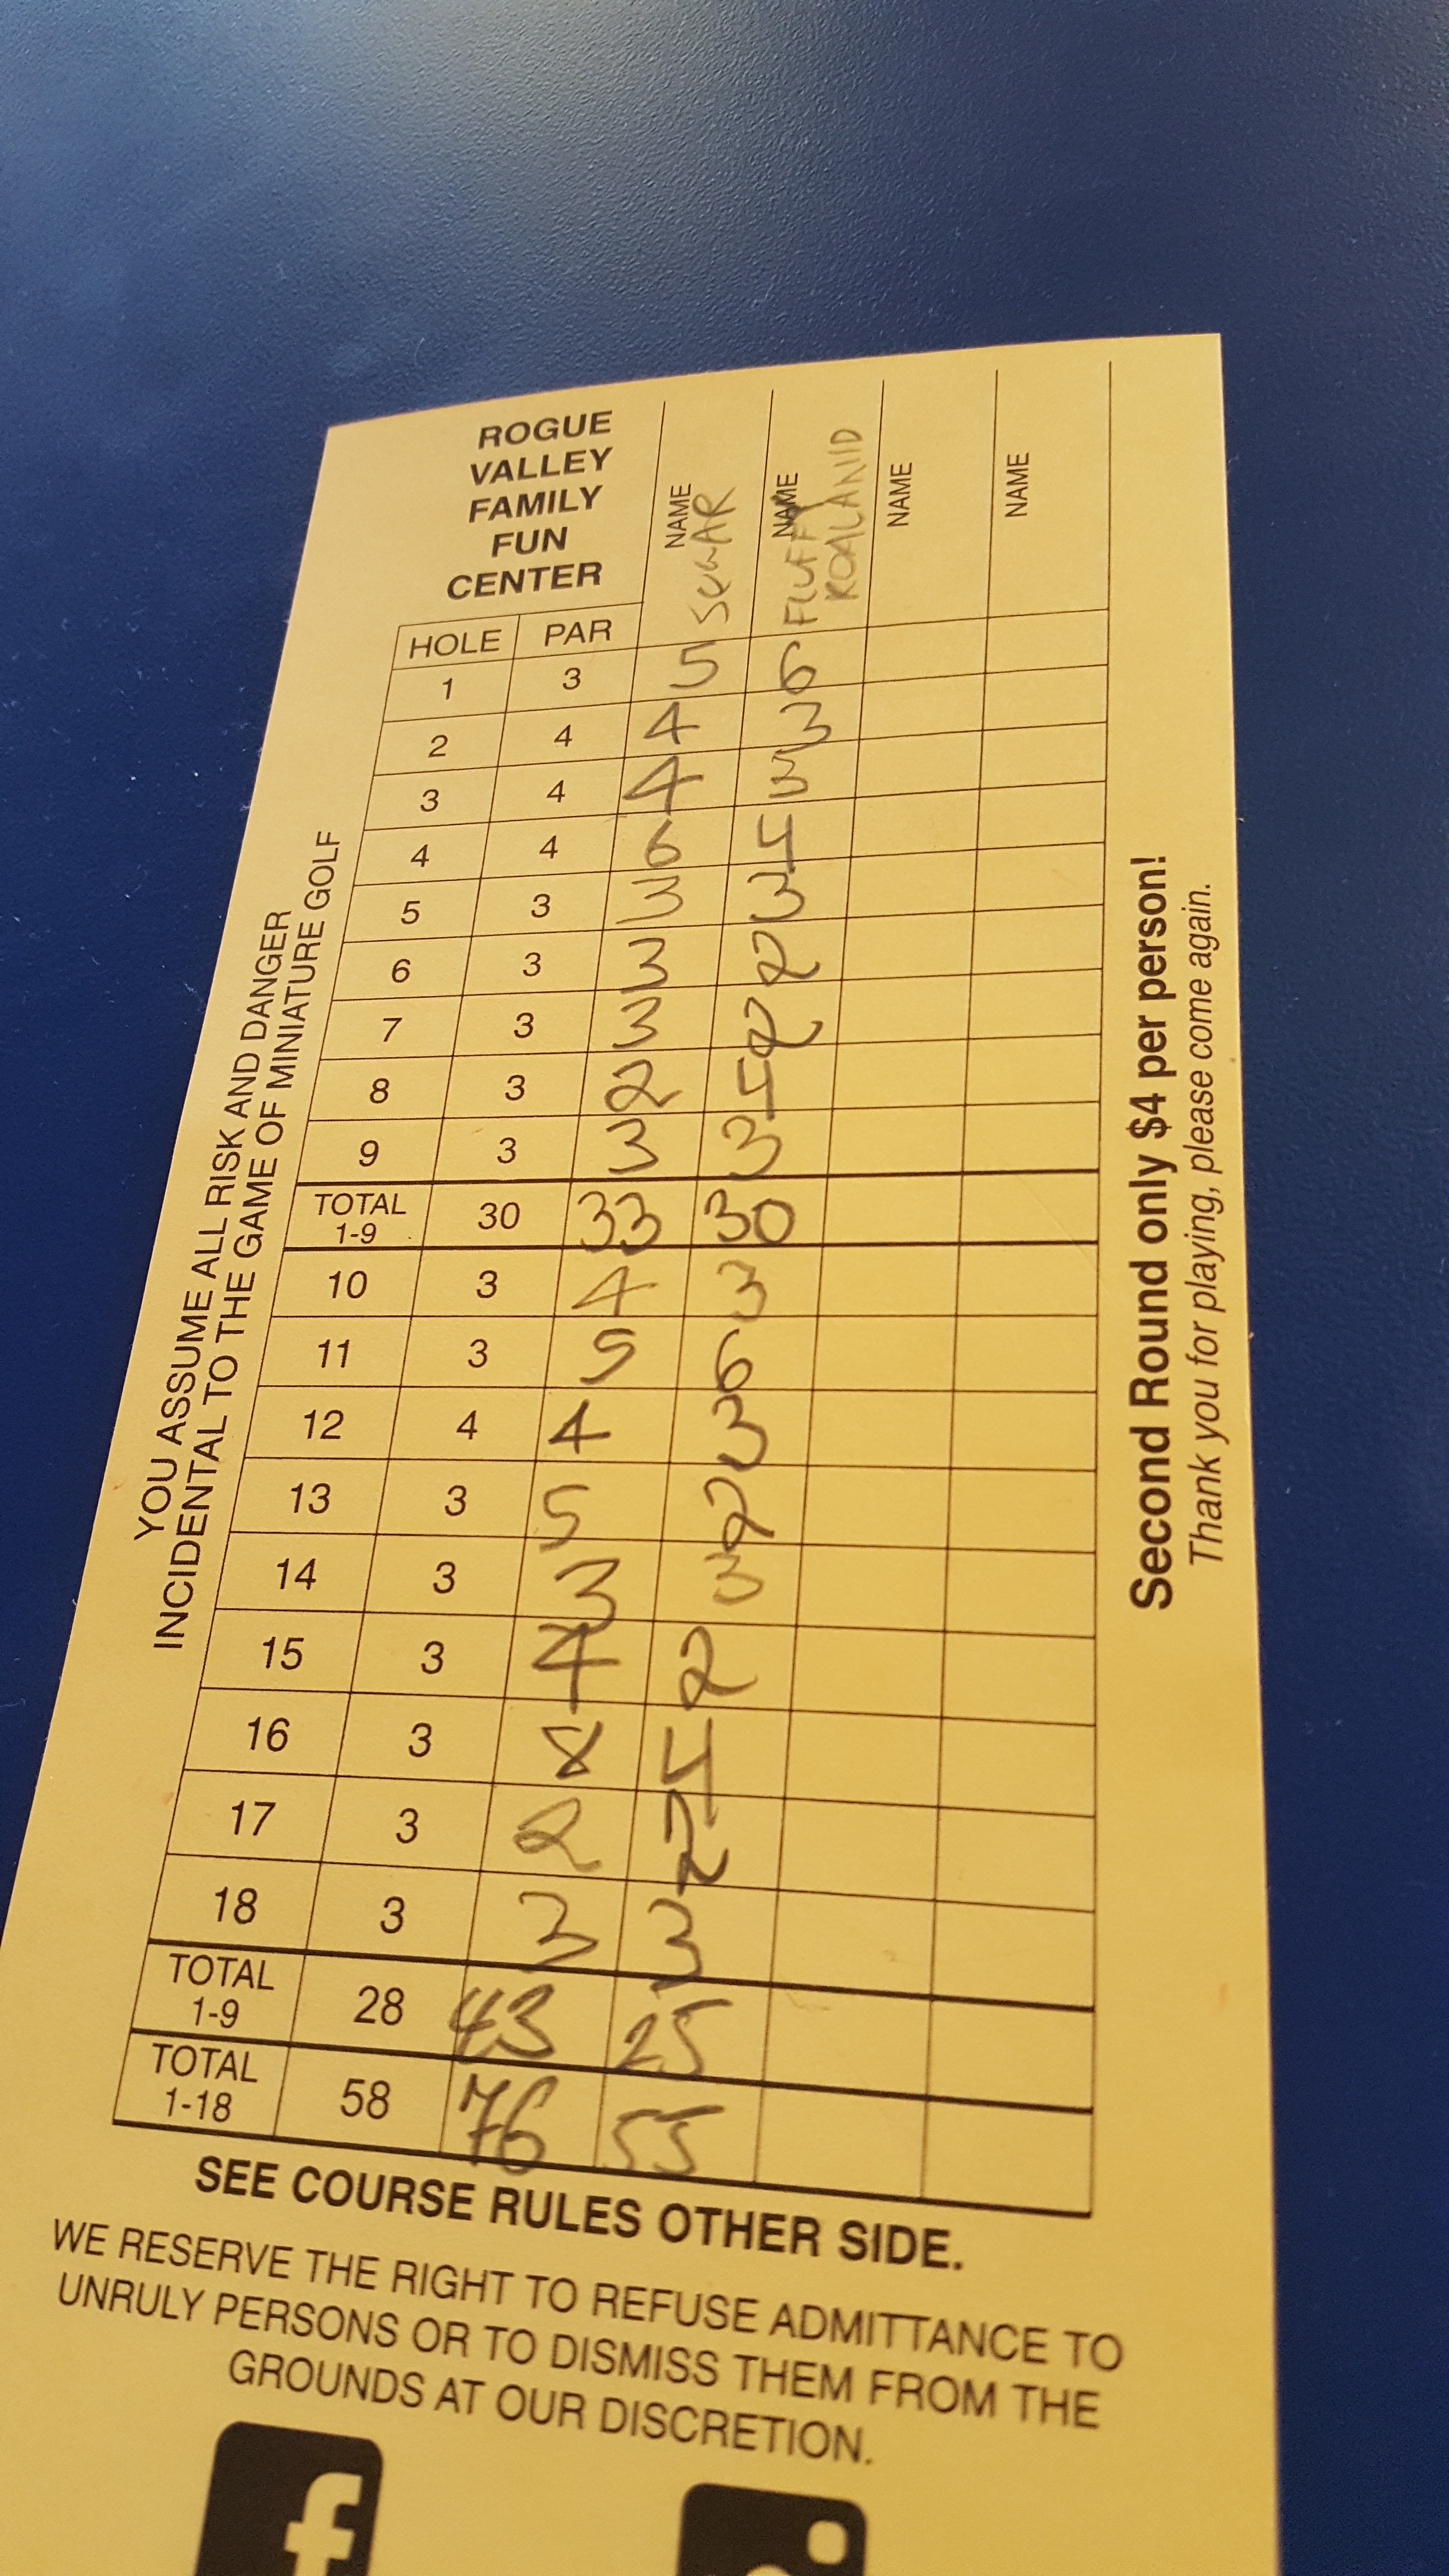 ROGUE
VALLEY
FAMILY
FUN
CENTER
NAME
NAME FLUFFY
KOALANIID
NAME
NAME
HOLE PAR
1 3 5 6
2 4 4 3
3 4 4 3
4 4 6 4
5 3 3 3
6 3 3 2
7 3 3 2
8 3 2 4
9 3 3 3
TOTAL
1-9 30 33 30
10 3 4 3
11 3 5 6
12 4 4 3
13 3 5 2
14 3 3 3
15 3 4 2
16 3 8
17 3 2 2
18 3 3 3
TOTAL
1-9 28 43 25
TOTAL
1-18 58 76 55
YOU ASSUME ALL RISK AND DANGER
INCIDENTAL TO THE GAME OF MINIATURE GOLF
Second Round only $4 per person!
Thank you for playing, please come again.
SEE COURSE RULES OTHER SIDE.
WE RESERVE THE RIGHT TO REFUSE ADMITTANCE TO
UNRULY PERSONS OR TO DISMISS THEM FROM THE
GROUNDS AT OUR DISCRETION.